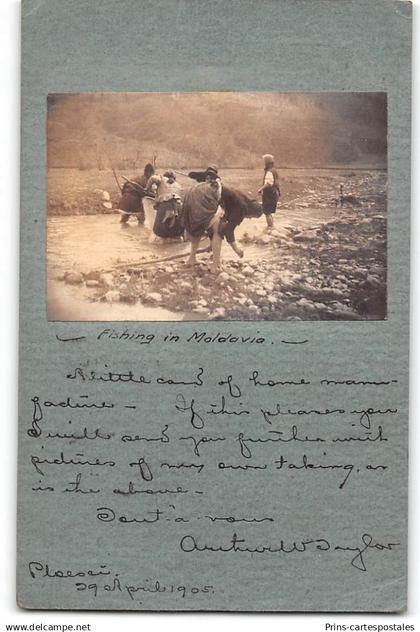 Fishing in Moldavia.
A little card of home manu-
facture - If this pleases you
I will send you further with
pictures of my own taking, as
is the above -
Tout à vous
Arthur W Taylor
Ploesci.
29 April 1905.
www.delcampe.net
Prins-cartespostales